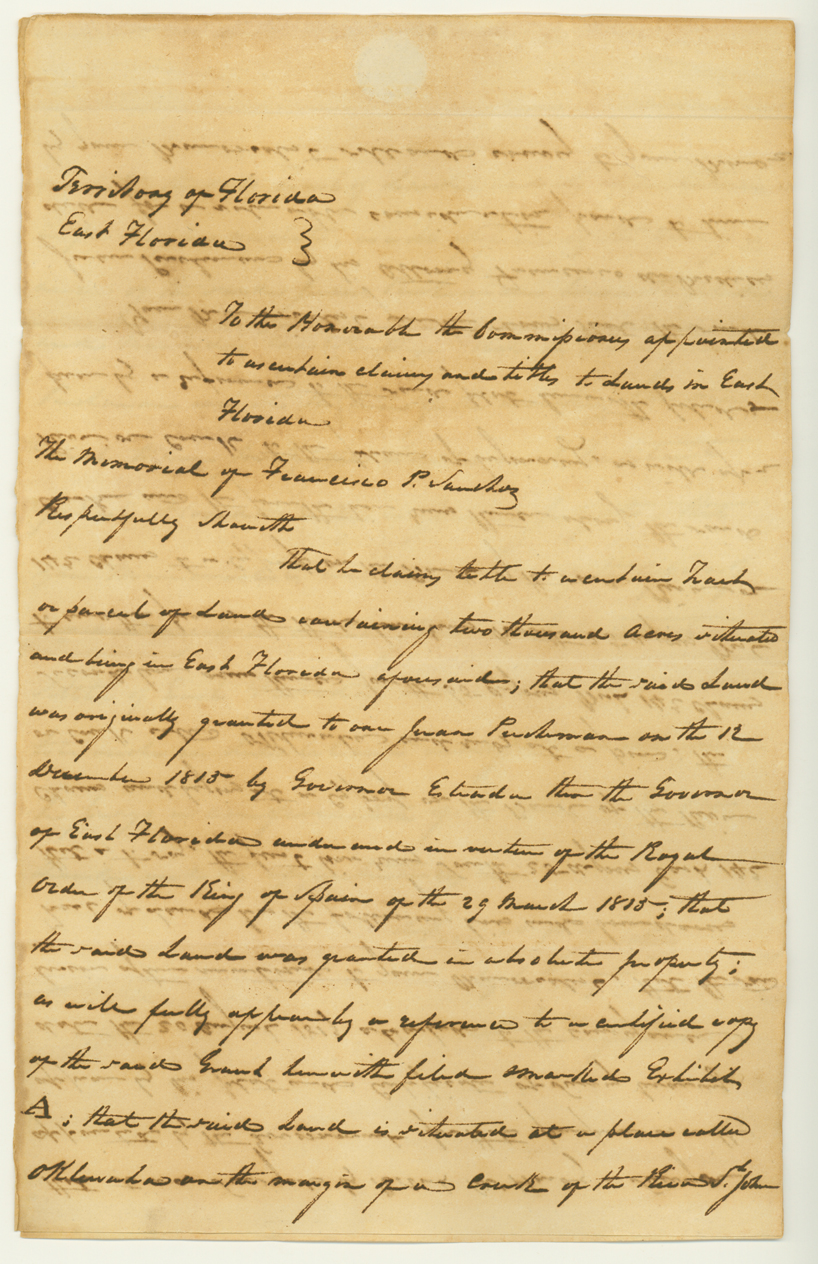 Territory of Florida
East Florida }
To the Honorable the Commissioners appointed
to ascertain claims and titles to Lands in East
Florida
The Memorial of Francisco P. Sanchez
Respectfully Sheweth
That he claims title to a certain Tract
or parcel of Land containing two thousand Acres situated
and being in East Florida aforesaid; that the said Land
was originally granted to one Juan on the 12
December 1815 by Governor Estrada then the Governor
of East Florida under and in virtue of the Royal
Order of the King of Spain of the 29 March 1815; that
the said Land was granted in absolute property;
as will fully appear by a reference to a certified copy
of the said Grant herewith filed marked Exhibit
A; that the said Land is situated at a place called
Oklawaha on the margin of a Creek of the River St. John